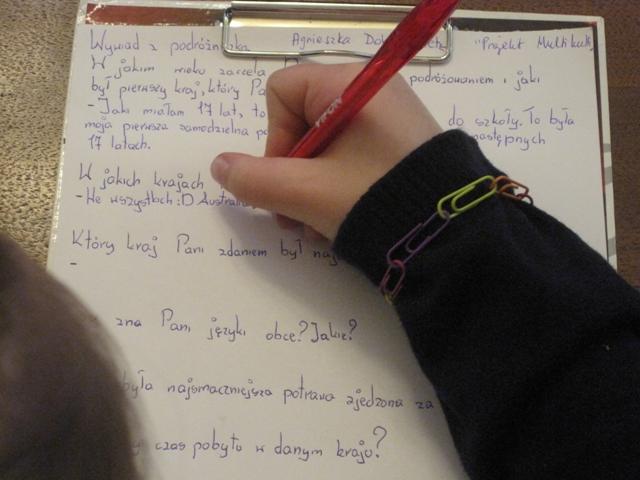 Wywiad z Agnieszka "Projekt Multikulti
W jakim wieku zaczęła podróżowaniem i jaki
był pierwszy kraj, który Pa
- Jak miałam 17 lat, to do szkoły. To była
moja pierwsza samodzielna następnych
17 latach.
W jakich krajach
- We wszystkich :D Australia
Który kraj Pani zdaniem był naj
-
zna Pani języki obce? Jakie?
była najsmaczniejsza potrawa zjedzona za
czas pobytu w danym kraju?